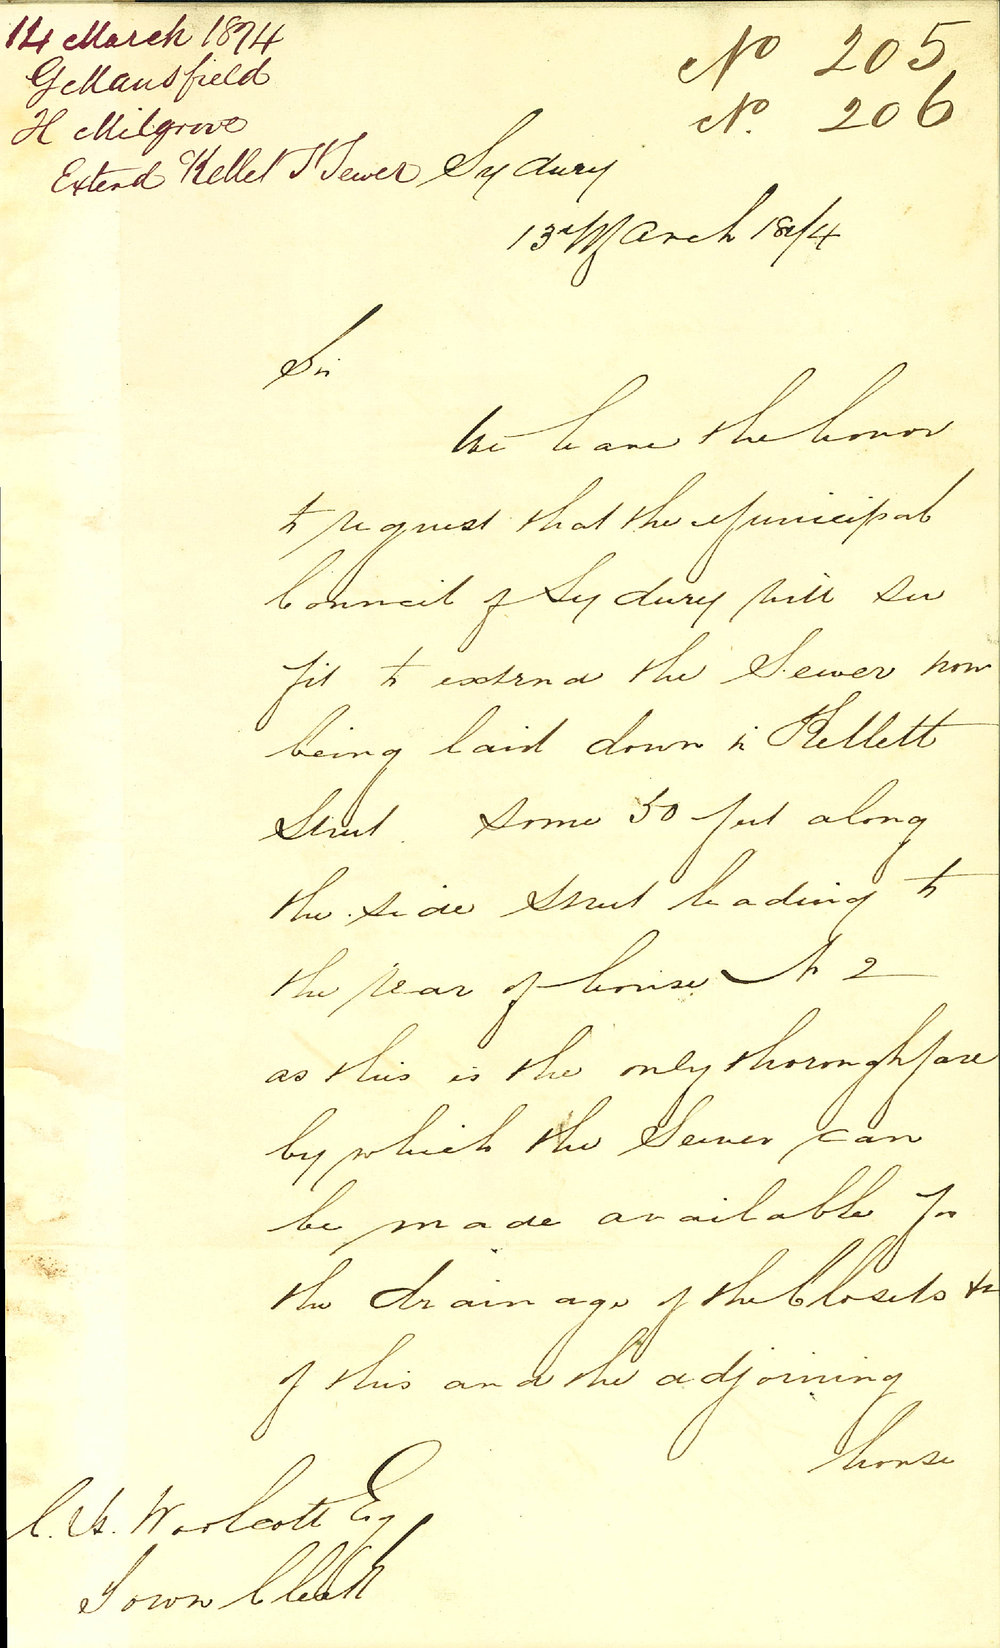 14 March 1874
G Mansfield
H Milgrove
Extend Kellet St Sewer
No 205
No. 206
Sydney
13th March 1874
Sir
We have the honor
to request that the Municipal
Council of Sydney will see
fit to extend the Sewer now
being laid down in Kellett
Street some 50 feet along
the side street leading to
the rear of house No 2
as this is the only thoroughfare
by which the Sewer can
be made available for
the drainage of the Closets &c
of this and the adjoining
house
C. H. Woolcott Esq
Town Clerk